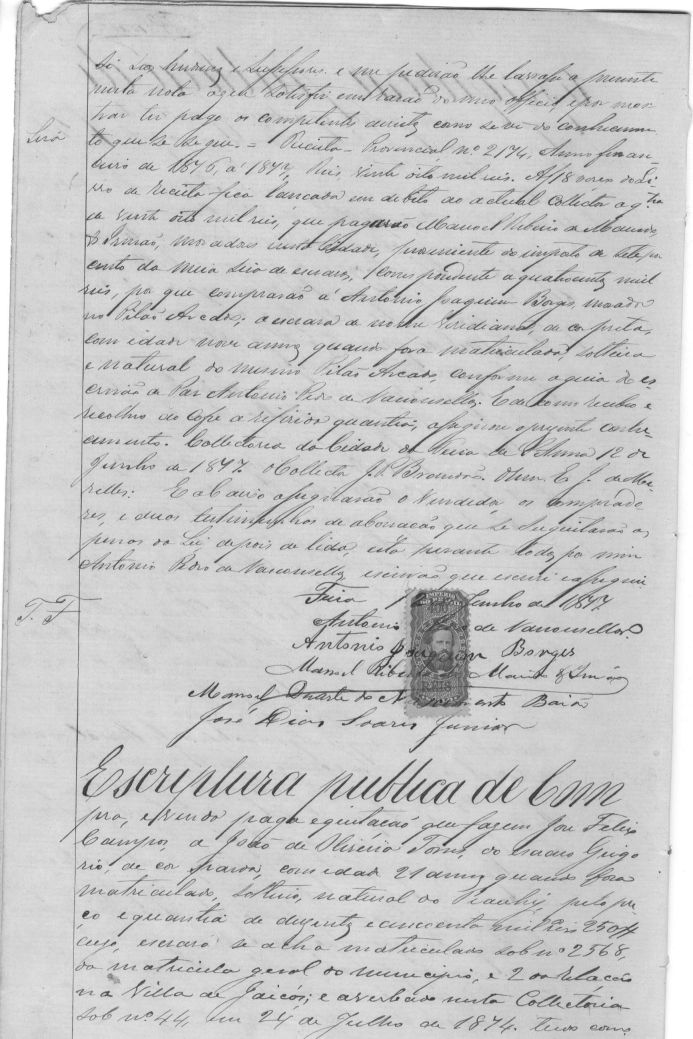 si seos herdeiros e sucessores e me pedirão lhe lavrasse a presente
nesta nota a qual satisfiz em rasão do meu officio e por mos
trar ter pago os competentes direitos como se vê do conhecimen
to que se segue. = Receita Provincial nº 2174, Anno finan
ceiro de 1876, a 1877, Reis, vinte oito mil reis. Af 18 verso do Li
vro de receita fica lançada em debito ao actual Collector a qtia
de vinte oito mil reis, que pagarão Manoel Ribeiro de Macedo
& Irmão, moradores nesta Cidade, proveniente do imposto de sete por
cento da meia siza de escravos, correspondente a quatrocentos mil
reis, por que comprarão á Antonio Joaquim Borges, morador
no Pilão Arcado, a escrava de nome Viridiana, de cor preta,
com idade nove annos quando fora matriculada, solteira
e natural do mesmo Pilão Arcado, conforme a guia do es
crivão de Paz Antonio Pedro de Vasconsellos. E de como recebeu e
recolheu ao cofre a referida quantia, assignou o presente conhe
cimento. Collectoria da Cidade da Feira de Sant'Anna 12 de
Junho de 1877. O Collector J. Brandão. O Escr. E. J. de Mei
relles: E abaixo assignarão o vendedor, os comprado
res, e duas testimunhas de abonação que se sugeitarão as
penas da Lei, depois de lida, esta perante todos por mim
Antonio Pedro de Vasconsellos, escrivão que escrevi e assignei
T. F.
Feira Junho de 1877.
Antonio de Vasconsellos.
IMPERIO DO BRAZIL
200
REIS
Antonio Joaquim Borges
Manoel Ribeiro Macedo & Irmão
Manoel Duarte do Nascimento Baião
José Dias Soares Junior
Escriptura publica de Com
pra, e venda paga e quitação que fazem José Felix
Campos, a João de Oliveira Torres, do escravo Grigo
rio, de cor parda, com idade 21 annos quando fora
matriculado, solteiro, natural do Piauhy, pelo pre
ço e quantia de duzentos e cincoenta mil reis 250$
cujo, escravo se acha matriculado sob nº 2568,
da matricula geral do municipio, e 2 da relação
na Villa de Jaicós; e averbado nesta Collectoria
sob nº 44, em 24 de Julho de 1874. tudo como